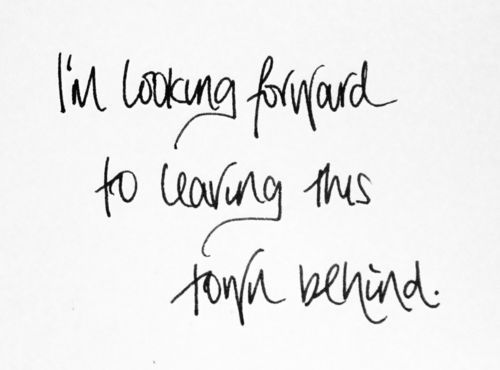 I'm looking forward
to leaving this
town behind.